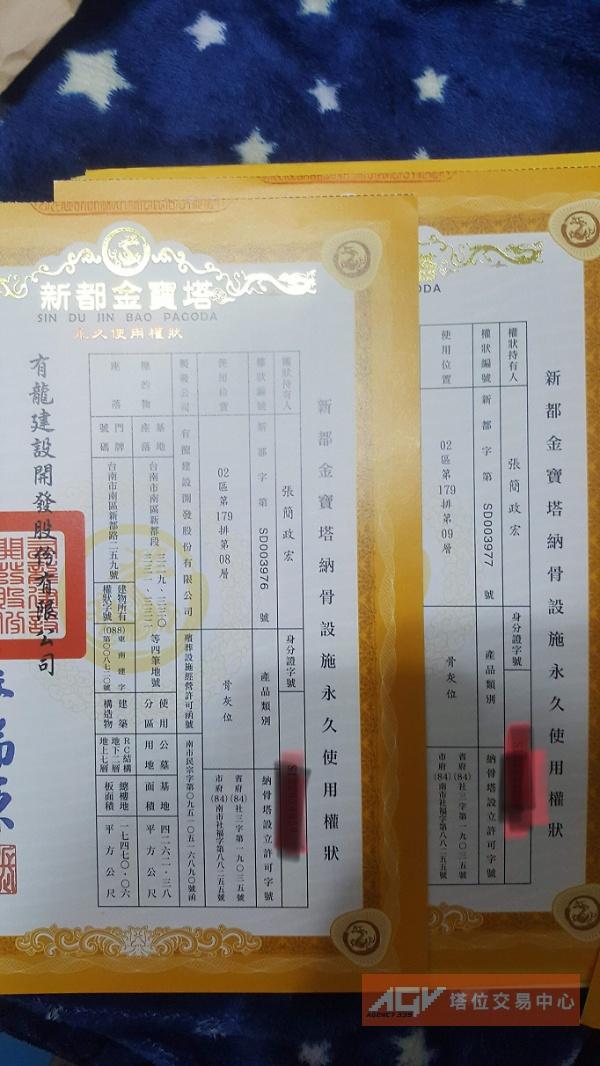 新都金寶塔
SIN DU JIN BAO PAGODA
永久使用權狀
新都金寶塔納骨設施永久使用權狀
權狀持有人
張簡政宏
身分證字號
權狀編號
新都字第 SD003976 號
產品類別
骨灰位
使用位置
02區第179排第08層
納骨塔設立許可字號
省府(84)社三字第一九0三五號
市府(84)南市社福字第八八二五五號
製發公司
有龍建設開發股份有限公司
殯葬設施經營許可函號
南市民宗字第0九五一0五一六八九0號函
標的物座落
基地座落
台南市南區新都段
等四筆地號
使用分區
公墓用地
基地面積
四二六二.三八平方公尺
門牌號碼
台南市南區新都路二五九號
建物所有權狀字號
(088)東南建字第00八七二0號
建築構造物
RC結構
地下二層
地上七層
總樓地板面積
一七四七0.0六平方公尺
有龍建設開發股份有限公司
GODA
新都金寶塔納骨設施永久使用權狀
權狀持有人
張簡政宏
身分證字號
權狀編號
新都字第 SD003977 號
產品類別
骨灰位
使用位置
02區第179排第09層
納骨塔設立許可字號
省府(84)社三字第一九0三五號
市府(84)南市社福字第八八二五五號
AGV 塔位交易中心
AGENCY.339